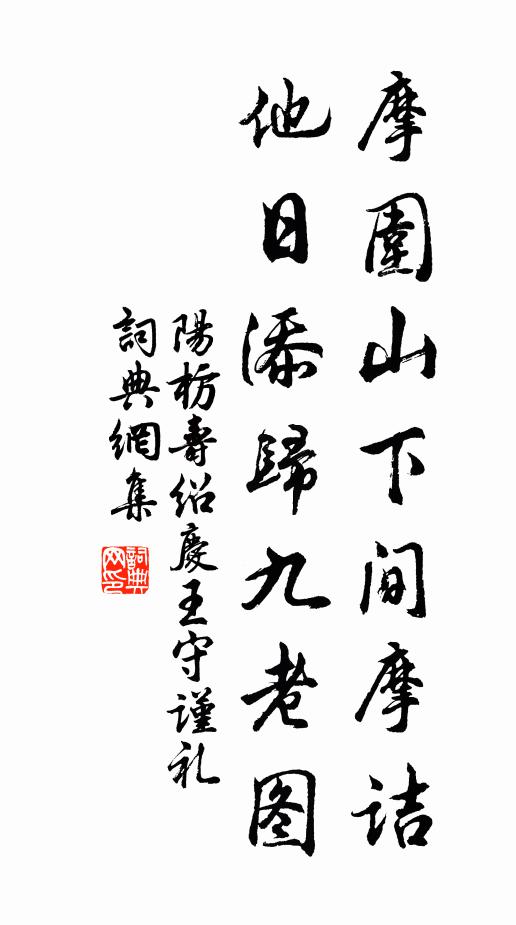 摩圍山下间摩诘
他日添歸九老图
陽枋壽绍慶王守谨礼
詞典網集
詞典网印